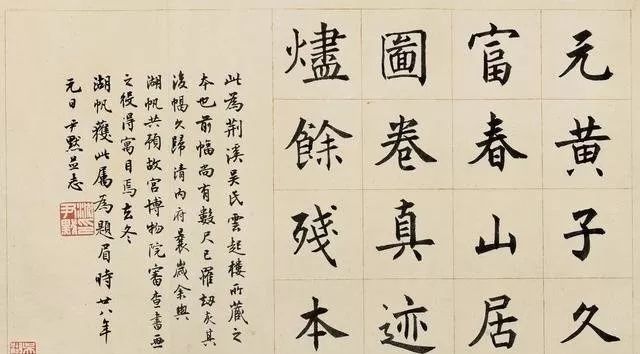 元黄子久
富春山居
圖卷真迹
燼餘殘本
此為荆溪吳氏雲起樓所藏之
本也前幅尚有數尺已罹劫灰其
後幅久歸清内府曩歲余與
湖帆共預故宫博物院審查書画
之役得寓目焉去冬
湖帆獲此属為題眉時廿八年
元日尹默并志